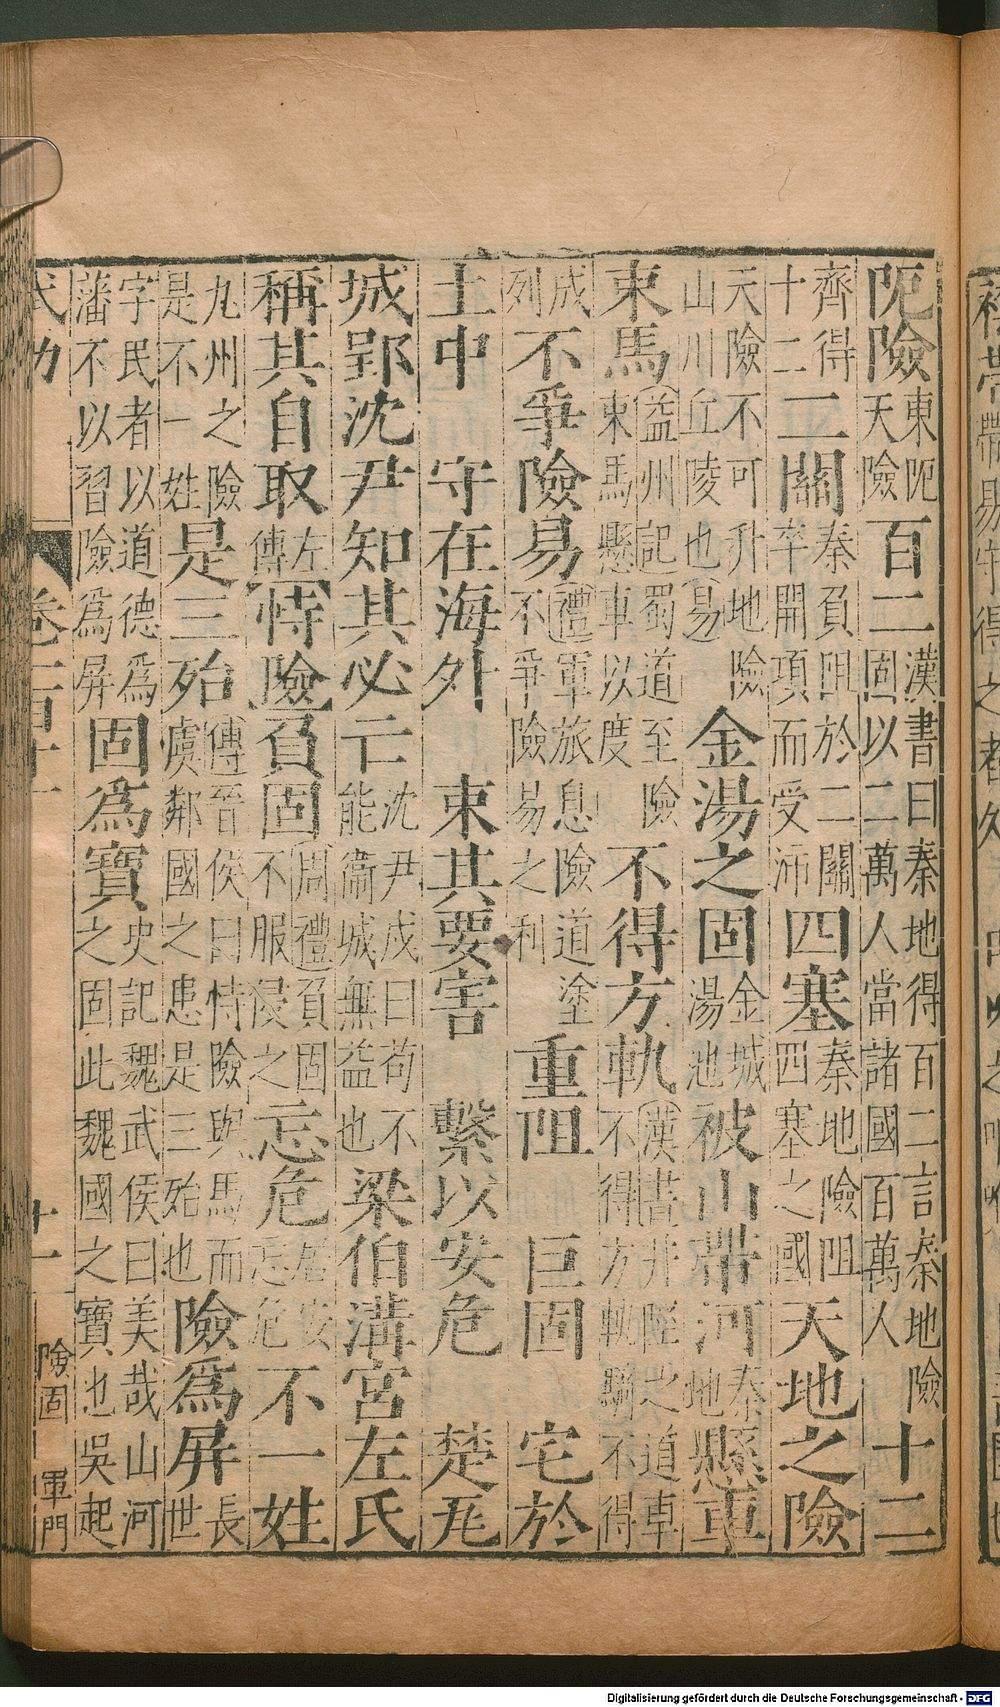 阨險東阨天險百二漢書曰秦地得百二言秦地險固以二萬人當諸國百萬人十二
齊得十二二關秦負阻於二關卒開項而受沛四塞秦地險阻四塞之國天地之險
天險不可升地險山川丘陵也易金湯之固金城湯池被山帶河秦地懸車
束馬益州記蜀道至險束馬懸車以度不得方軌漢書井陘之道車不得方軌騎不得
成列不爭險易禮軍旅息險道塗不爭險易之利重阻 巨固 宅於
土中 守在海外 束其要害 繫以安危 楚瓦
城郢沈尹知其必亡沈尹戍曰苟不能衞城無益也梁伯溝宮左氏
稱其自取左傳恃險負固周禮負固不服侵之忘危居安忘危不一姓
九州之險是不一姓是三殆傳晉侯曰恃險與馬而虞鄰國之患是三殆也險爲屏長世
字民者以道德爲藩不以習險爲屏固爲寶史記魏武侯曰美哉山河之固此魏國之寶也吳起
險固 軍門
Digitalisierung gefördert durch die Deutsche Forschungsgemeinschaft - DFG